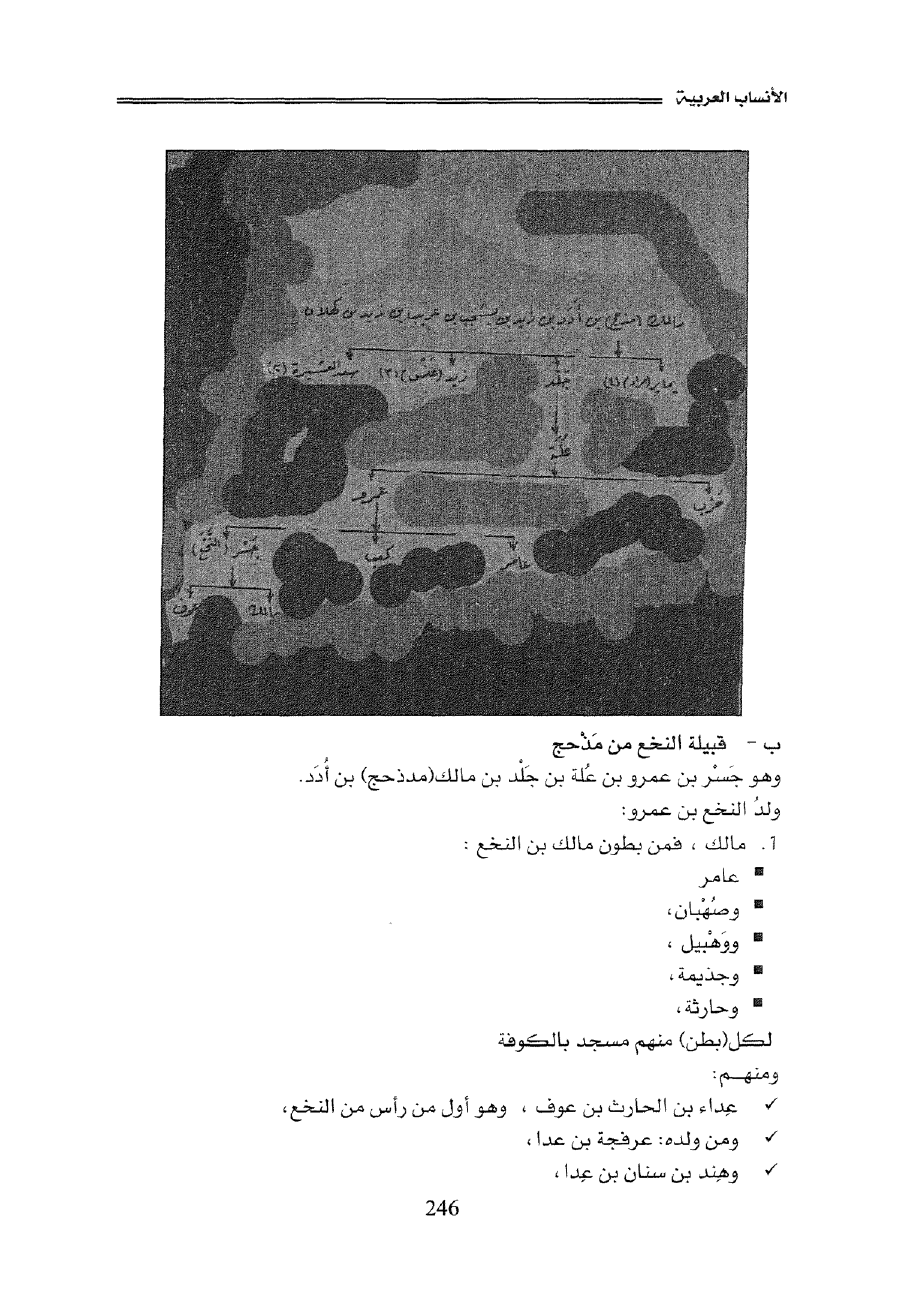 الأنساب العربية
مالك (مذحج) بن أُدَد بن زيد بن يشجب بن عريب بن زيد بن كهلان
يحابر (مراد) (٤) جَلْد زيد (عَنْس) (٣) سعد العشيرة (٢)
عُلَة
حَرْب عمرو
عامر كعب جَسْر (النَّخَع)
مالك عوف
ب - قبيلة النخع من مَذْحج
وهو جَسْر بن عمرو بن عُلة بن جَلْد بن مالك(مدذحج) بن أُدَد.
ولدُ النخع بن عمرو:
آ. مالك ، فمن بطون مالك بن النخع :
▪ عامر
▪ وصُهْبان،
▪ ووَهْبيل ،
▪ وجذيمة،
▪ وحارثة،
لكل(بطن) منهم مسجد بالكوفة
ومنهـم:
✓ عِداء بن الحارث بن عوف ، وهو أول من رأس من النخع،
✓ ومن ولده: عرفجة بن عدا ،
✓ وهِند بن سنان بن عِدا ،
246